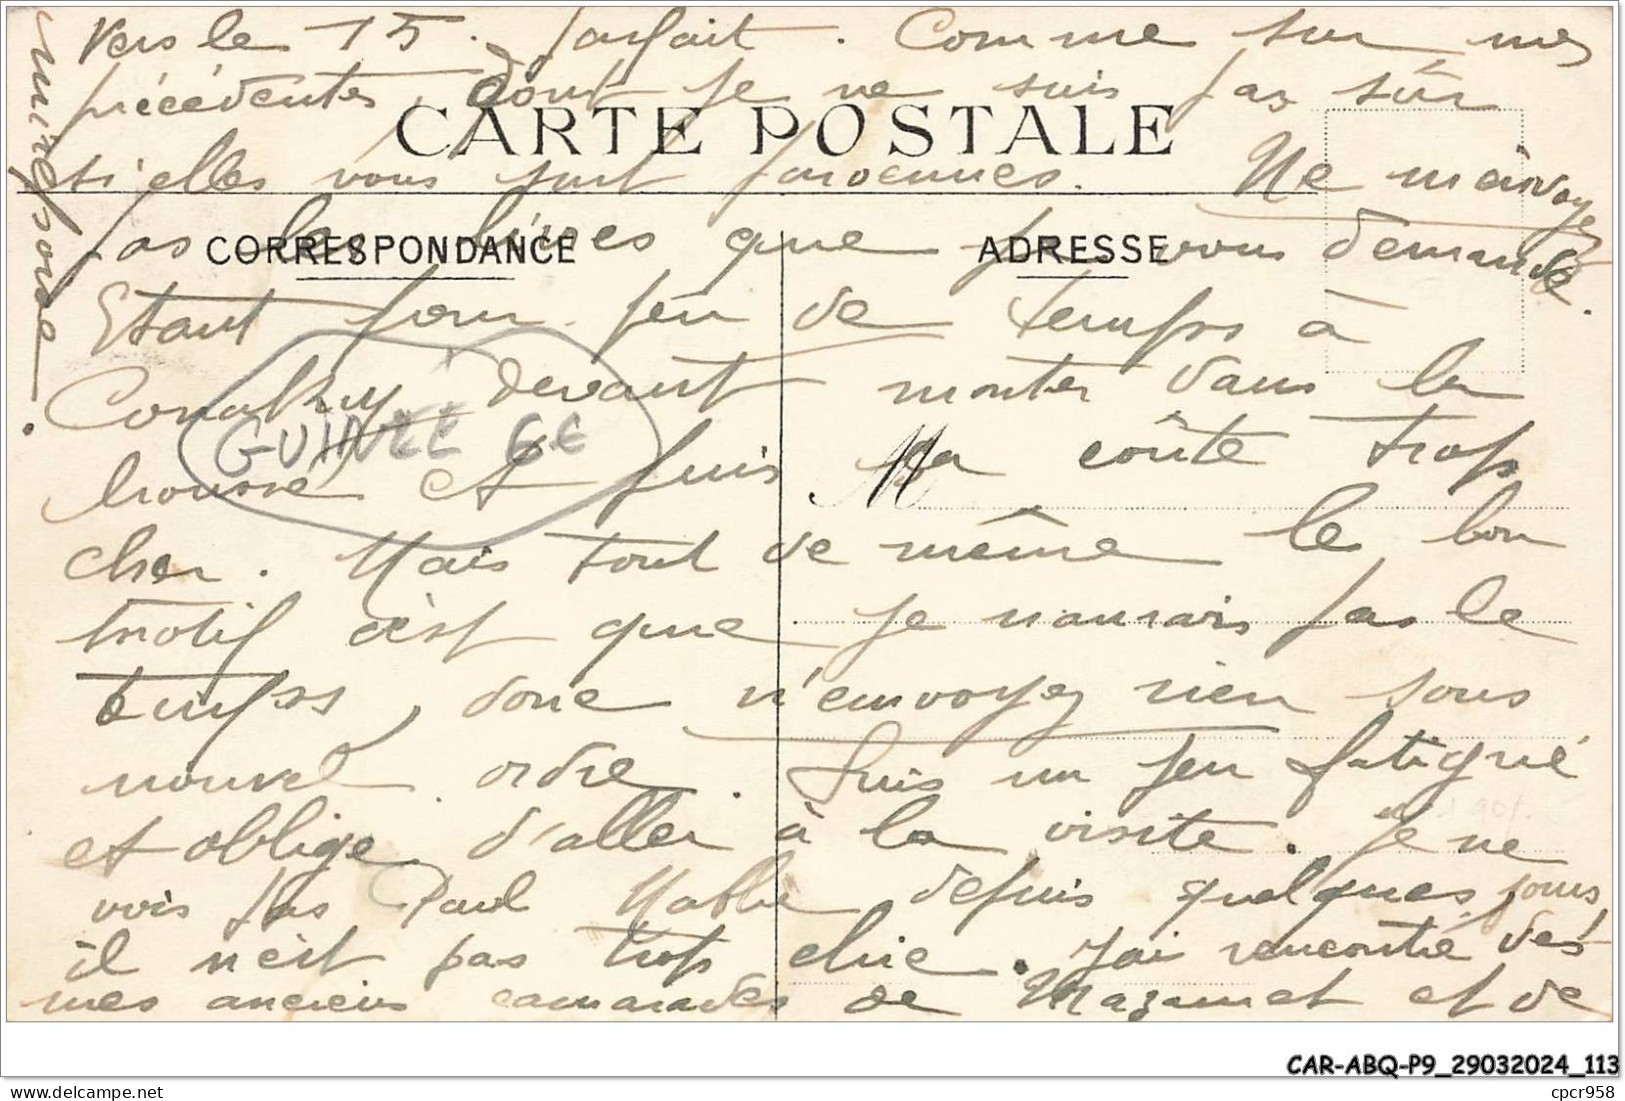 Vers le 15. parfait. Comme sur mes
précédentes, dont je ne suis pas sûr
CARTE POSTALE
si elles vous sont parvenues. Ne m'envoyez
pas les livres que je vous demande.
CORRESPONDANCE
ADRESSE
Etant pour peu de temps à
Conakry devant monter dans la
GUINÉE 6€
brousse et puis ça coûte trop
M
cher. Mais tout de même le bon
motif c'est que je n'aurais pas le
temps, donc n'envoyez rien sous
nouvel ordre. Suis un peu fatigué
et oblige d'aller à la visite. Je ne
vois pas Paul depuis quelques jours
il n'est pas trop chic. J'ai rencontré des
mes anciens camarades de Mazamet et de
Mirepoix.
CAR-ABQ-P9_29032024_113
cpcr958